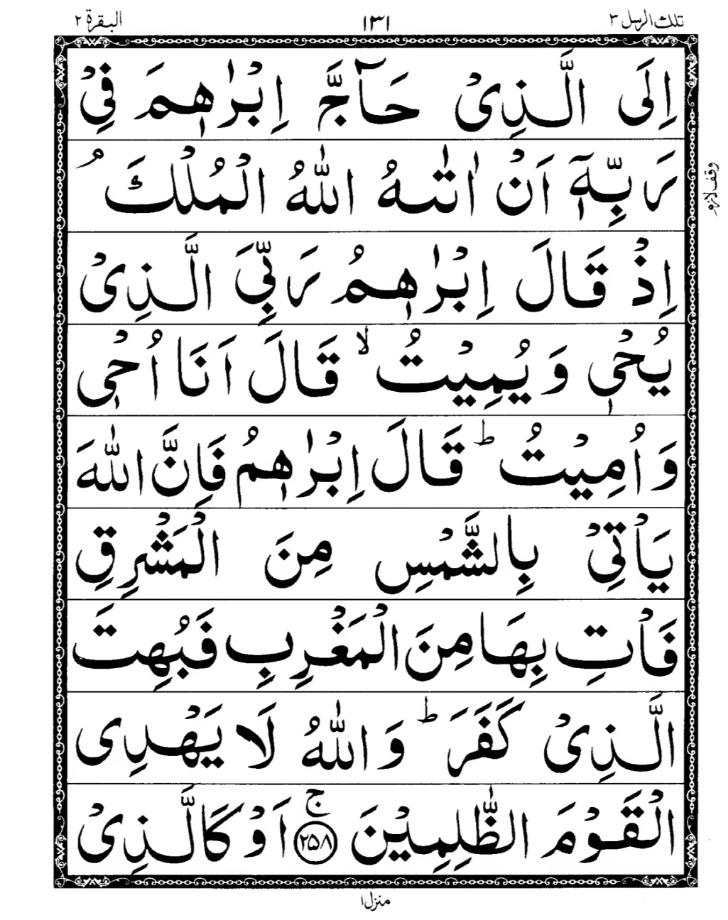 تلك الرسل ٣ ١٣١ البقرة ٢
اِلَى الَّذِىْ حَآجَّ اِبْرٰهٖمَ فِىْ
رَبِّهٖۤ اَنْ اٰتٰىهُ اللّٰهُ الْمُلْكَ ۘ
وقف لازم
اِذْ قَالَ اِبْرٰهٖمُ رَبِّىَ الَّذِىْ
يُحْىٖ وَيُمِيْتُ ۙ قَالَ اَنَا اُحْىٖ
وَاُمِيْتُ ؕ قَالَ اِبْرٰهٖمُ فَاِنَّ اللّٰهَ
يَاْتِىْ بِالشَّمْسِ مِنَ الْمَشْرِقِ
فَاْتِ بِهَا مِنَ الْمَغْرِبِ فَبُهِتَ
الَّذِىْ كَفَرَ ؕ وَاللّٰهُ لَا يَهْدِى
الْقَوْمَ الظّٰلِمِيْنَ ۚ ﴿٢٥٨﴾ اَوْ كَالَّذِىْ
منزل ١